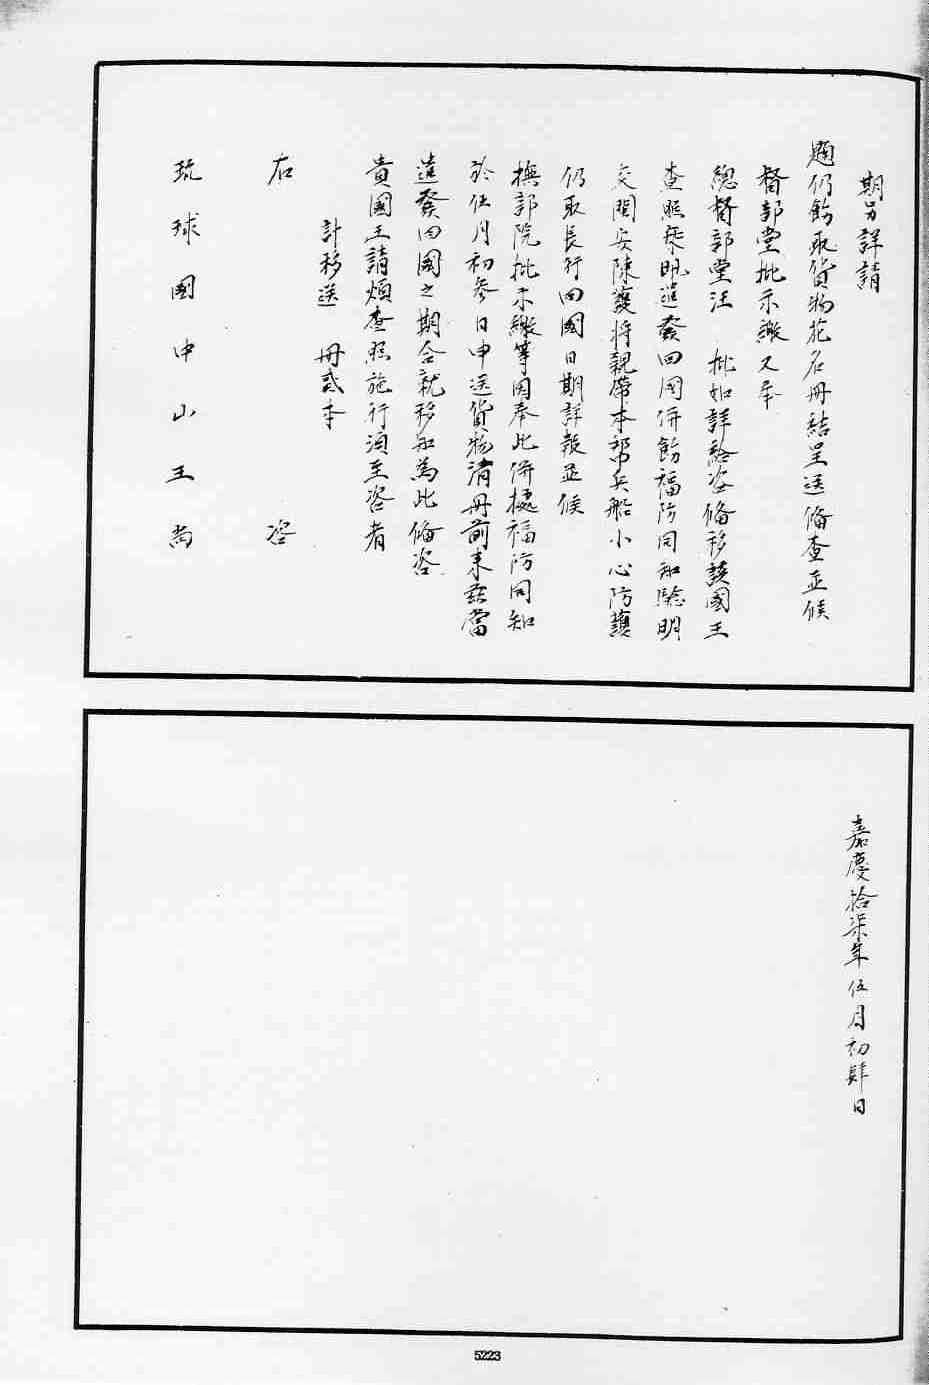 期另詳請
題仍飭取貨物花名冊結呈送備查並候
督部堂批示繳又奉
總督部堂汪　批如詳給咨備移該國王
查照至明遣發回國併飭福防同知驗明
交閩安陳護將親帶本部兵船小心防護
仍取長行回國日期詳報並候
撫部院批示繳等因奉此併據福防同知
於伍月初參日申送貨物清冊前來茲當
遣發回國之期合就移知為此備咨
貴國王請煩查照施行須至咨者
計移送　冊貳本
右　咨
琉球國中山王尚
嘉慶拾柒年伍月初肆日
5223